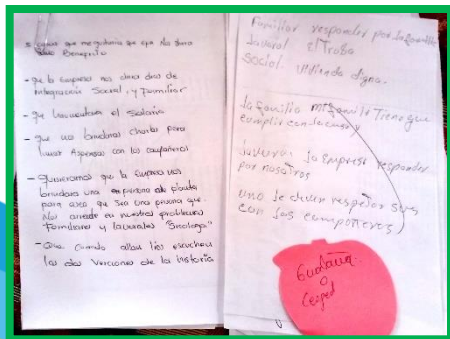 que me gustaria que epa Nos diera
Beneficio
- Que la Empresa nos diera dias de
integración Social, y familiar
- Que el Salario
- Que nos brindaran charlas para
con los compañeros
- Quisieramos que la Empresa nos
brindara una persona de planta
para asea que sea una persona que
Nos en nuestros problemas
familiares y laborales "Sicologa"
- Que Cuando allan lios escuchen
las dos Verciones de la historia
Familiar responder por la familia
laboral el Trabo
Social. Vivienda digna.
la familia mi familia Tiene que
cumplir con la casa y
laboral. la Empresa responder
por nosotros
uno se deven respetor
con los compañeros
Guadaña
o
Cesped